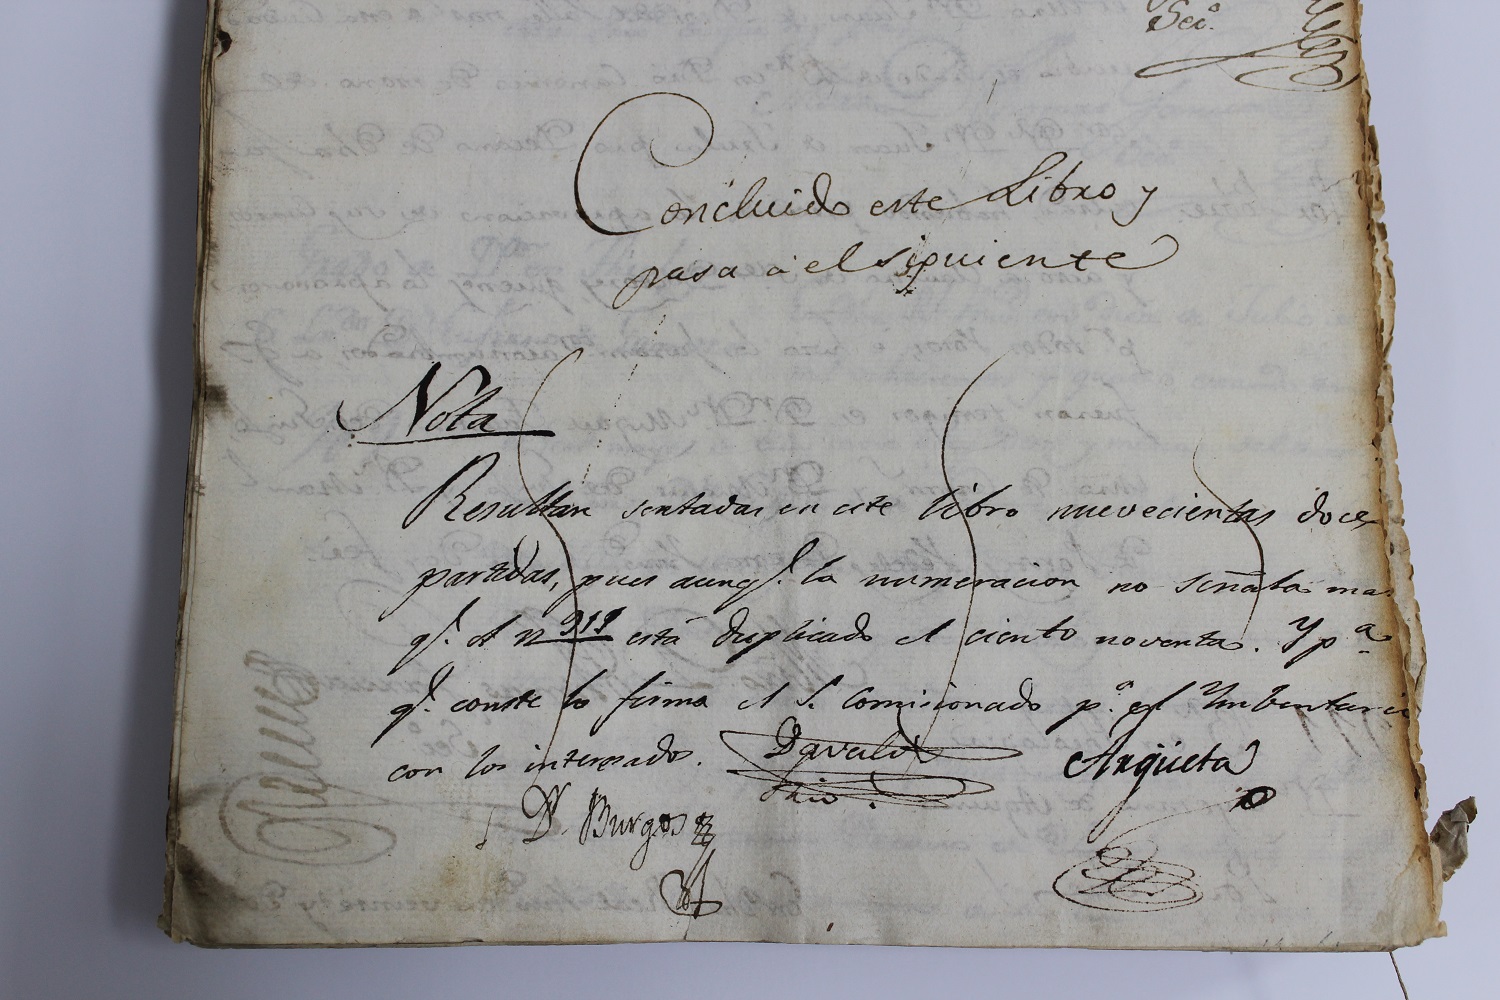 Seo.
Concluido este Libro y
pasa á el siguiente
Nota
Resultan sentadas en este libro nuevecientas doce
partidas, pues aunq.e la numeracion no señala mas
q.e el n 911 está duplicado el ciento noventa. Y p.a
q.e conste lo firma el S. Comisionado p.a el Ynbentario
con los interesados.
Davalos
Argüeta
Dr. Burgos